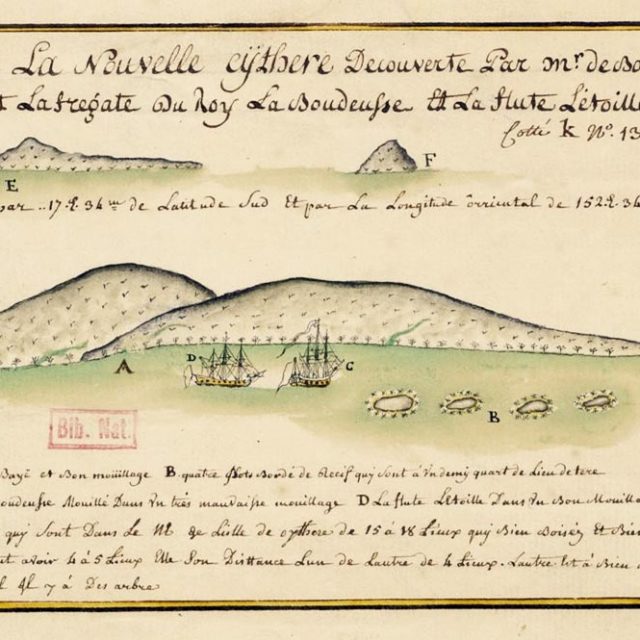 La Nouvelle cÿthere Decouverte Par mr. de Bo
t La fregate Du Roy La Boudeusse Et La flute L'etoille
Cotté k No. 13
E
F
par .. 17. d. 34 m de Latitude Sud Et par La Longitude orriental de 152. d. 34
A
D
C
B
Bib. Nat.
Baÿe et Bon mouillage B. quatre jlots Bordé de Recif qui sont à un demi quart de Lieu de tere
oudeusse Mouillé Dans un très mauvaisse mouillage D La flute L'etoille Dans un Bon Mouilla
qui sont Dans Le de L'isle de cythere de 15 à 18 Lieux quy Bien Boisés Et Bien
t avoir 4 à 5 Lieux Elle son Disttance L'un de Lautre de 4 Lieux. Lautre Et à Bien
jl y à Des arbre